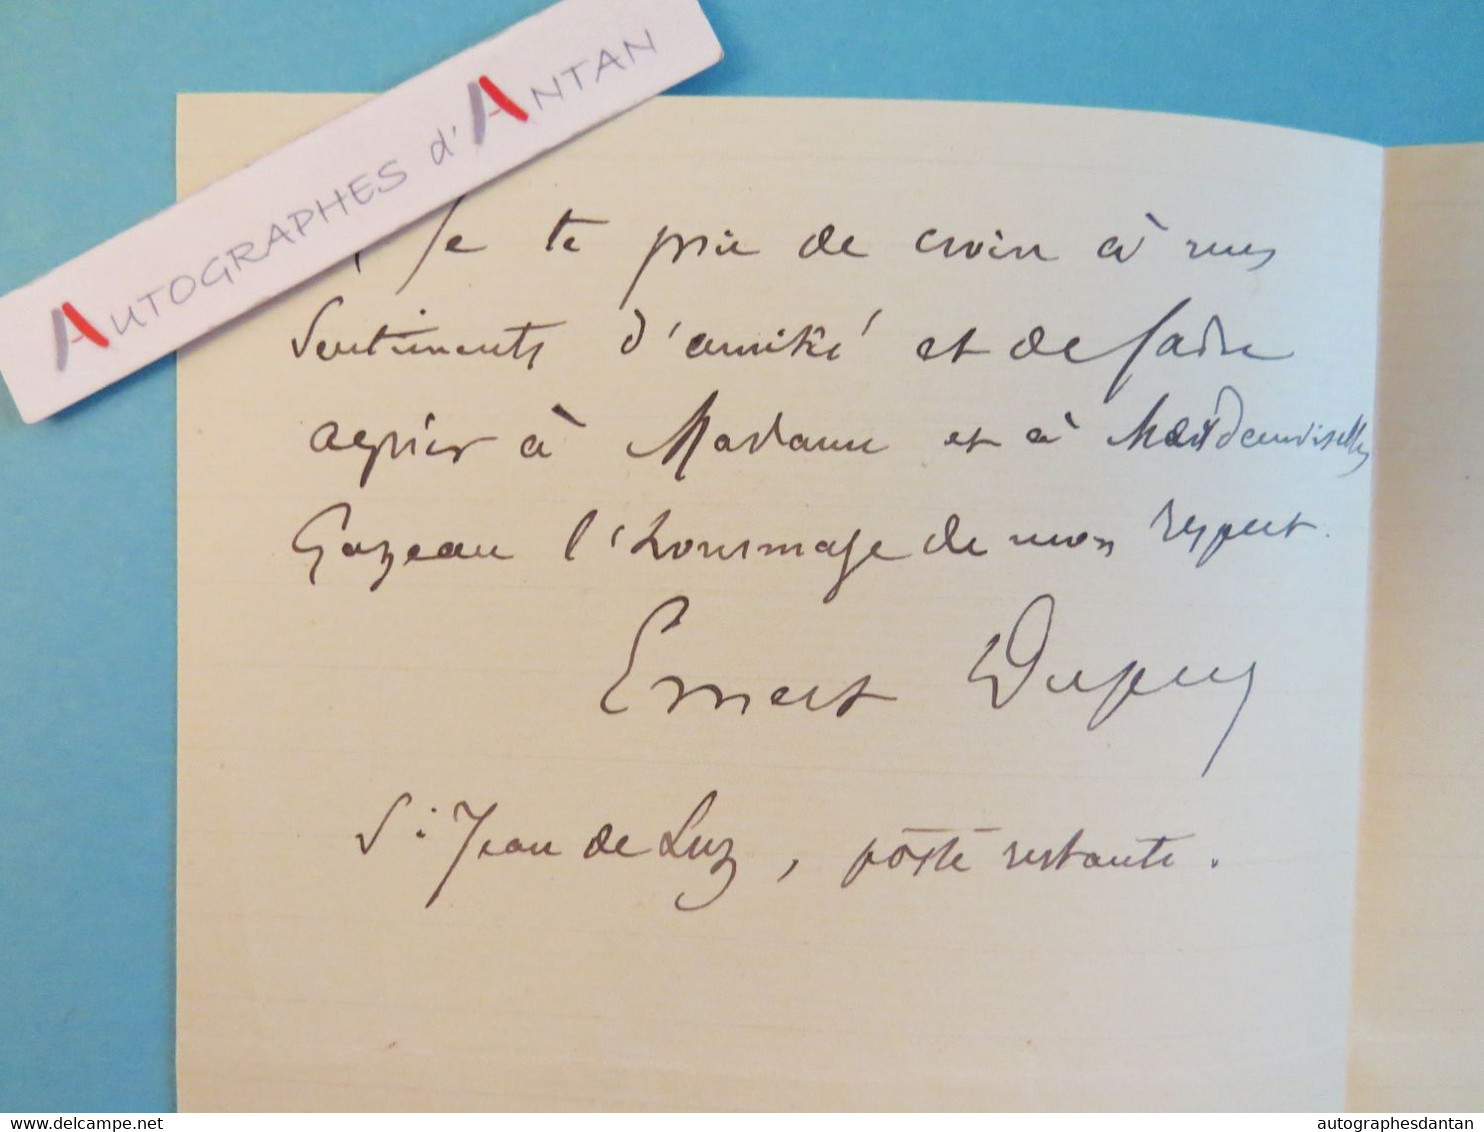 AUTOGRAPHES d'ANTAN
Je te prie de croire à mes
sentiments d'amitié et de faire
agréer à Madame et à Mesdemoiselles
Gazeau l'hommage de mon respect.
Ernest Dupuy
St Jean de Luz, poste restante.
delcampe.net
autographesdantan